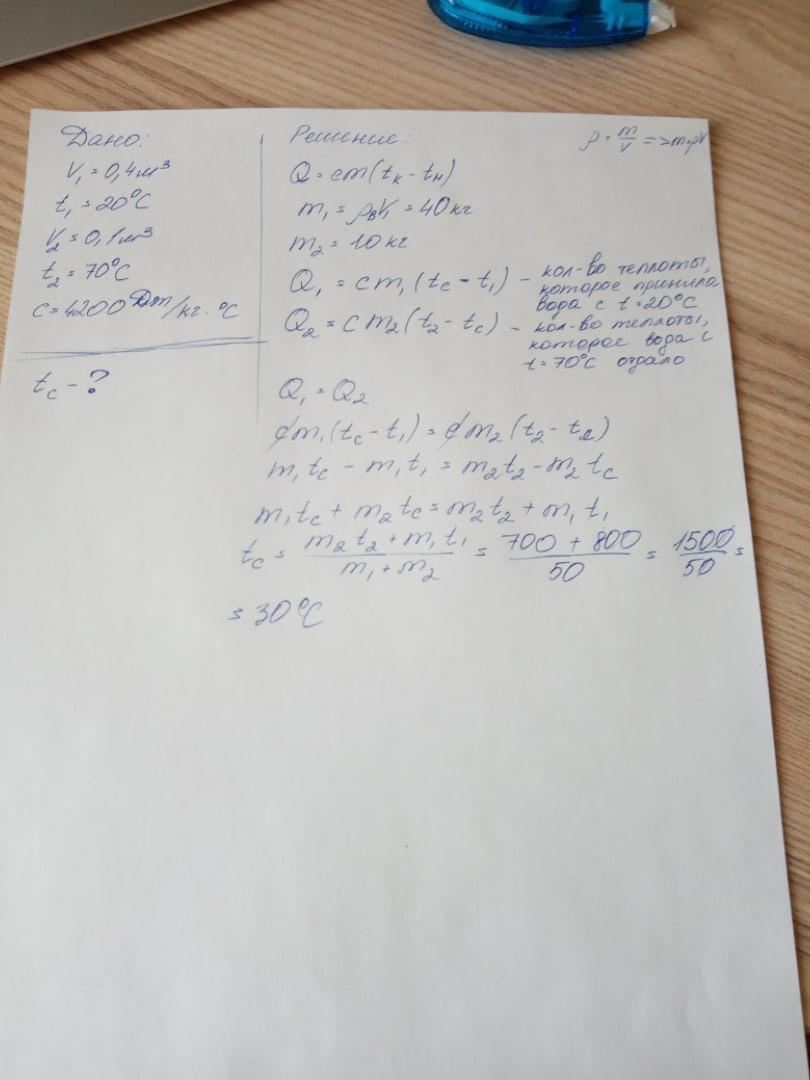 Дано:
V₁ = 0,4 м³
t₁ = 20°C
V₂ = 0,1 м³
t₂ = 70°C
c = 4200 Дж/кг·°C
t_c - ?
Решение:
ρ = m/V => m = ρV
Q = cm(t_к - t_н)
m₁ = ρ_вV₁ = 40 кг
m₂ = 10 кг
Q₁ = cm₁(t_c - t₁) - кол-во теплоты,
которое приняла
вода с t = 20°C
Q₂ = cm₂(t₂ - t_c) - кол-во теплоты,
которое вода с
t = 70°C отдало
Q₁ = Q₂
cm₁(t_c - t₁) = cm₂(t₂ - t_c)
m₁t_c - m₁t₁ = m₂t₂ - m₂t_c
m₁t_c + m₂t_c = m₂t₂ + m₁t₁
t_c = (m₂t₂ + m₁t₁)/(m₁ + m₂) = (700 + 800)/50 = 1500/50 =
= 30°C